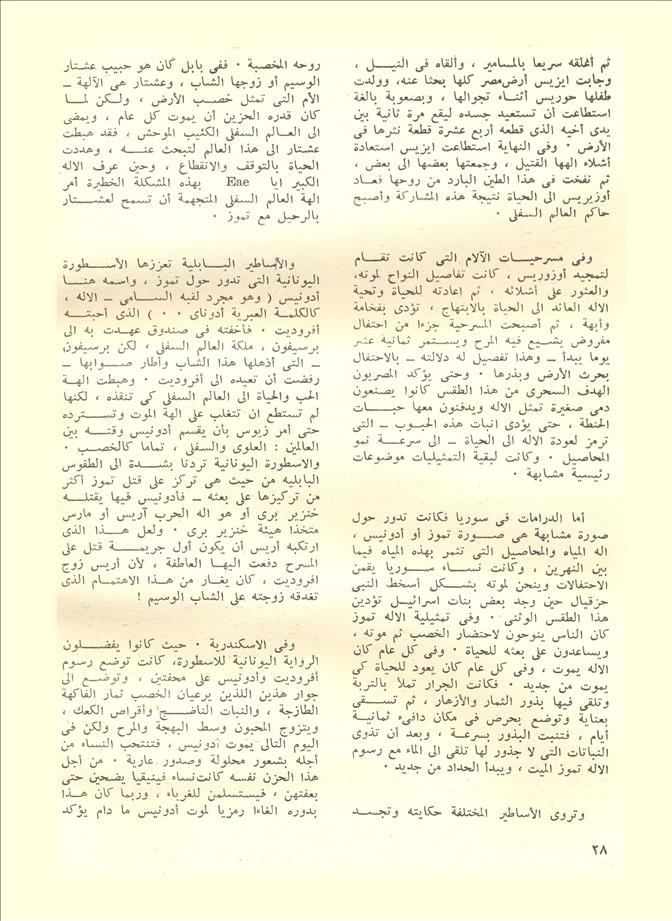 ثم أغلقه سريعا بالمسامير ، وألقاه فى النيـــل ،
وجابت ايزيس أرض مصر كلها بحثا عنه، وولدت
طفلها حوريس أثنــاء تجوالها ، وبصعوبة بالغة
استطاعت أن تستعيد جسده ليقع مرة ثانية بين
يدى أخيه الذى قطعه أربع عشرة قطعة نثرها فى
الأرض ٠ وفى النهاية استطاعت ايزيس استعادة
أشلاء الهها القتيل ، وجمعتها بعضها الى بعض ،
ثم نفخت فى هذا الطين البارد من روحها فعــاد
أوزيريس الى الحياة نتيجة هذه المشاركة وأصبح
حاكم العالم السفلى ٠
وفى مسرحيــات الآلام التى كانت تقــام
لتمجيد أوزوريس ، كانت تفاصيل النواح لموته،
والعثور على أشلائه ، ثم اعادته للحياة وتحية
الاله العائد الى الحياة بالابتهاج ، تؤدى بفخامة
وأبهة ، ثم أصبحت المسرحية جزءا من احتفال
مفروض يشـــيع فيه المرح ويســتمر ثمانية عشر
يوما يبدأ ــ وهذا تفصيل له دلالته ــ بالاحتفال
بحرث الأرض وبذرها ٠ وحتى يؤكد المصريون
الهدف السحرى من هذا الطقس كانوا يصنعون
دمى صغيرة تمثل الاله ويدفنون معها حبـــات
الحنطة ، حتى يؤدى انبات هذه الحبوب ــ التى
ترمز لعودة الاله الى الحياة ــ الى سرعـــة نمو
المحاصيل ٠ وكانت لبقية التمثيليات موضوعات
رئيسية مشابهة ٠
أما الدرامات فى سوريا فكانت تدور حول
صورة مشابهة هى صــورة تموز أو أدونيس ،
اله المياه والمحاصيل التى تثمر بهذه المياه فيما
بين النهرين ، وكانت نســاء ســـوريا يقمن
الاحتفالات وينحن لموته بشــكل أسخط النبى
حزقيال حين وجد بعض بنات اسرائيـل تؤدين
هذا الطقس الوثنى ٠ وفى تمثيلية الاله تموز
كان الناس ينوحون لاحتضار الخصب ثم موته ،
ويساعدون على بعثه للحياة ٠ وفى كل عام كان
الاله يموت ، وفى كل عام كان يعود للحياة كى
يموت من جديد ٠ فكانت الجرار تملأ بالتربة
وتلقى فيها بذور الثمار والأزهار ، ثم تســـقى
بعناية وتوضع بحرص فى مكان دافىء ثمانيــة
أيام ، فتنبت البذور بسرعــة ، وبعد أن تذوى
النباتات التى لا جذور لها تلقى الى الماء مع رسوم
الاله تموز الميت ، ويبدأ الحداد من جديد ٠
وتروى الأساطير المختلفة حكايته وتجســد
روحه المخصبة ٠ ففى بابل كان هو حبيب عشتار
الوسيم أو زوجها الشاب ، وعشتار هى الآلهة ــ
الأم التى تمثل خصــب الأرض ، ولكـن لمـــا
كان قدره الحزين أن يموت كل عام ، ويمضى
الى العــالم السفلى الكئيب الموحش ، فقد هبطت
عشتار الى هذا العالم لتبحث عنـــه ، وهددت
الحياة بالتوقف والانقطاع ، وحين عرف الاله
الكبير ايا Eae بهذه المشكلة الخطيرة أمر
الهة العالم السفلى المتجهمة أن تسمح لعشـــتار
بالرحيل مع تموز ٠
والأساطير البـــابلية تعززها الأســطورة
اليونانية التى تدور حول تموز ، واسمه هنــا
أدونيس ( وهو مجرد لقبه السـامى ــ الاله ،
كالكلمــة العبرية أدوناى ٠ ٠ ) الذى أحبتـــه
أفروديت ٠ فأخفته فى صندوق عهـدت به الى
برسيفون ، ملكة العالم السفلى ، لكن برسيفون
ــ التى أذهلها هذا الشاب وأطار صــوابها ــ
رفضت أن تعيده الى أفروديت ٠ وهبطت الهـة
الحب والحياة الى العالم السفلى كى تنقذه ، لكنها
لم تستطع ان تتغلب على الهة الموت وتســـترده
حتى أمر زيوس بأن يقسم أدونيس وقتـــه بين
العالمين : العلوى والسفلى ، تماما كالخصب ٠
والاسطورة اليونانية تردنا بشــدة الى الطقوس
البابليه من حيث هى تركز على قتل تموز أكثر
من تركيزها على بعثه ــ فأدونيس فيها يقتلـــه
خنزير برى أو هو اله الحرب آريس أو مارس
متخذا هيئة خنزير برى ٠ ولعل هــذا الذى
ارتكبه أريس أن يكون أول جريمــــة قتل على
المسرح دفعت اليهــا العاطفة ، لأن أريس زوج
افروديت ، كان يغــار من هــذا الاهتمــام الذى
تغدقه زوجته على الشاب الوسيم !
وفى الاسكندرية ٠ حيث كانوا يفضـــلون
الرواية اليونانية للاسطورة، كانت توضع رسوم
أفروديت وأدونيس على محفتين ، وتوضــع الى
جوار هذين اللذين يرعيان الخصب ثمار الفاكهة
الطازجة ، والنبات الناضـــج وأقراص الكعك ،
ويتزوج المحبون وسط البهجة والمرح ولكن فى
اليوم التالى يموت أدونيس ، فتنتحب النساء من
أجله بشعور محلولة وصدور عارية ٠ من أجل
هذا الحزن نفسه كانت نساء فينيقيا يضحين حتى
بعفتهن ، فيستسلمن للغرباء ، وربما كان هــذا
بدوره الغاءا رمزيا لموت أدونيس ما دام يؤكد
٢٨